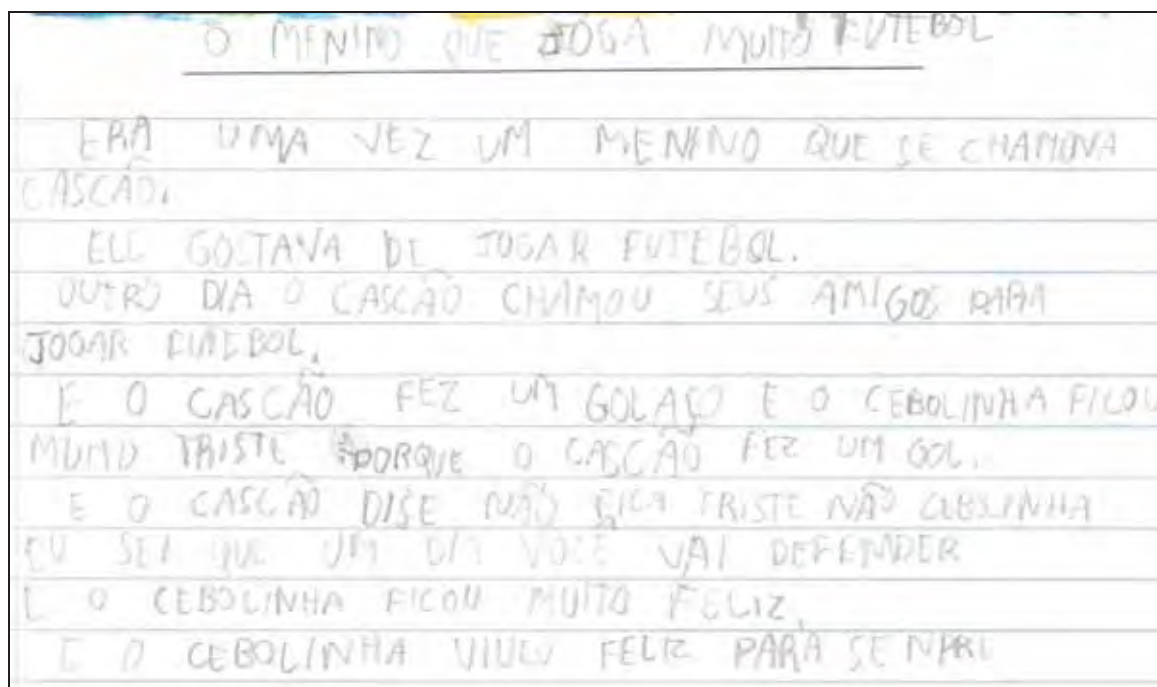 O MENINO QUE JOGA MUITO FUTEBOL
ERA UMA VEZ UM MENINO QUE SE CHAMAVA
CASCÃO.
ELE GOSTAVA DE JOGAR FUTEBOL.
OUTRO DIA O CASCÃO CHAMOU SEUS AMIGOS PARA
JOGAR FUTEBOL.
E O CASCÃO FEZ UM GOLAÇO E O CEBOLINHA FICOU
TRISTE PORQUE O CASCÃO FEZ UM GOL.
E O CASCÃO DISE NÃO FICA TRISTE NÃO
EU SEI QUE UM DIA VOCE VAI DEFENDER
E O CEBOLINHA FICOU MUITO FELIZ.
E O CEBOLINHA VIVEU FELIZ PARA SENPRE